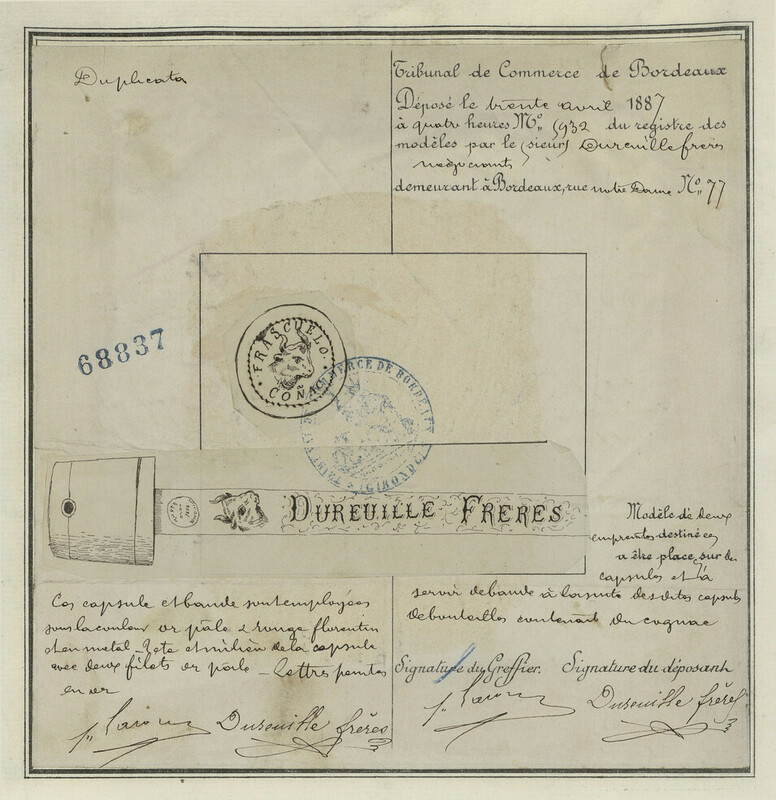 Duplicata
Tribunal de Commerce de Bordeaux
Déposé le trente avril 1887
à quatre heures No. 932 du registre des
modèles par le (sieur) Dureuille frères
négociants
demeurant à Bordeaux, rue notre Dame No. 77
68837
FRASCUELO
COÑAC
COMMERCE DE BORDEAUX
GIRONDE
DUREUILLE FRERES
Modèle de deux
empreintes destinées
a être place sur des
capsules et à
servir de bande à la suite desdites capsules
de bouteilles contenant du cognac
Ces capsule et bande sont employées
sous la couleur or pâle & rouge florentin
et en metal - Tete et milieu de la capsule
avec deux filets or pale - lettres peintes
en or
Signature du Greffier. Signature du déposant
Dureuille frères
Dureuille frères